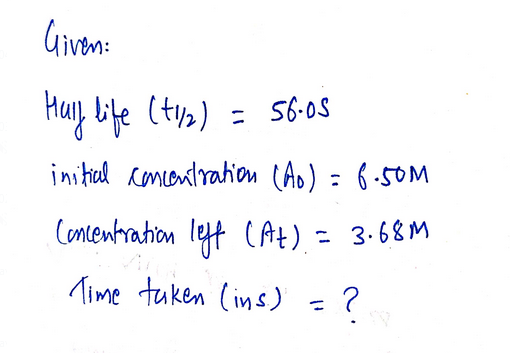 Given:
Half life (t1/2) = 56.0S
initial concentration (A0) = 6.50M
Concentration left (At) = 3.68M
Time taken (in s) = ?